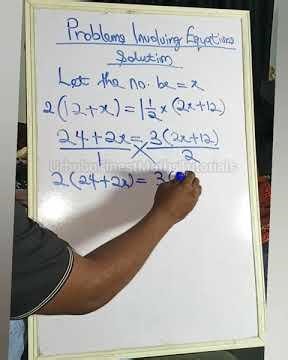 Problems Involving Equations
Solution
Let the no. be = x
2(12+x) = 1 1/2 × (2x+12)
24+2x/1 = 3(2x+12)/2
2(24+2x) = 3(